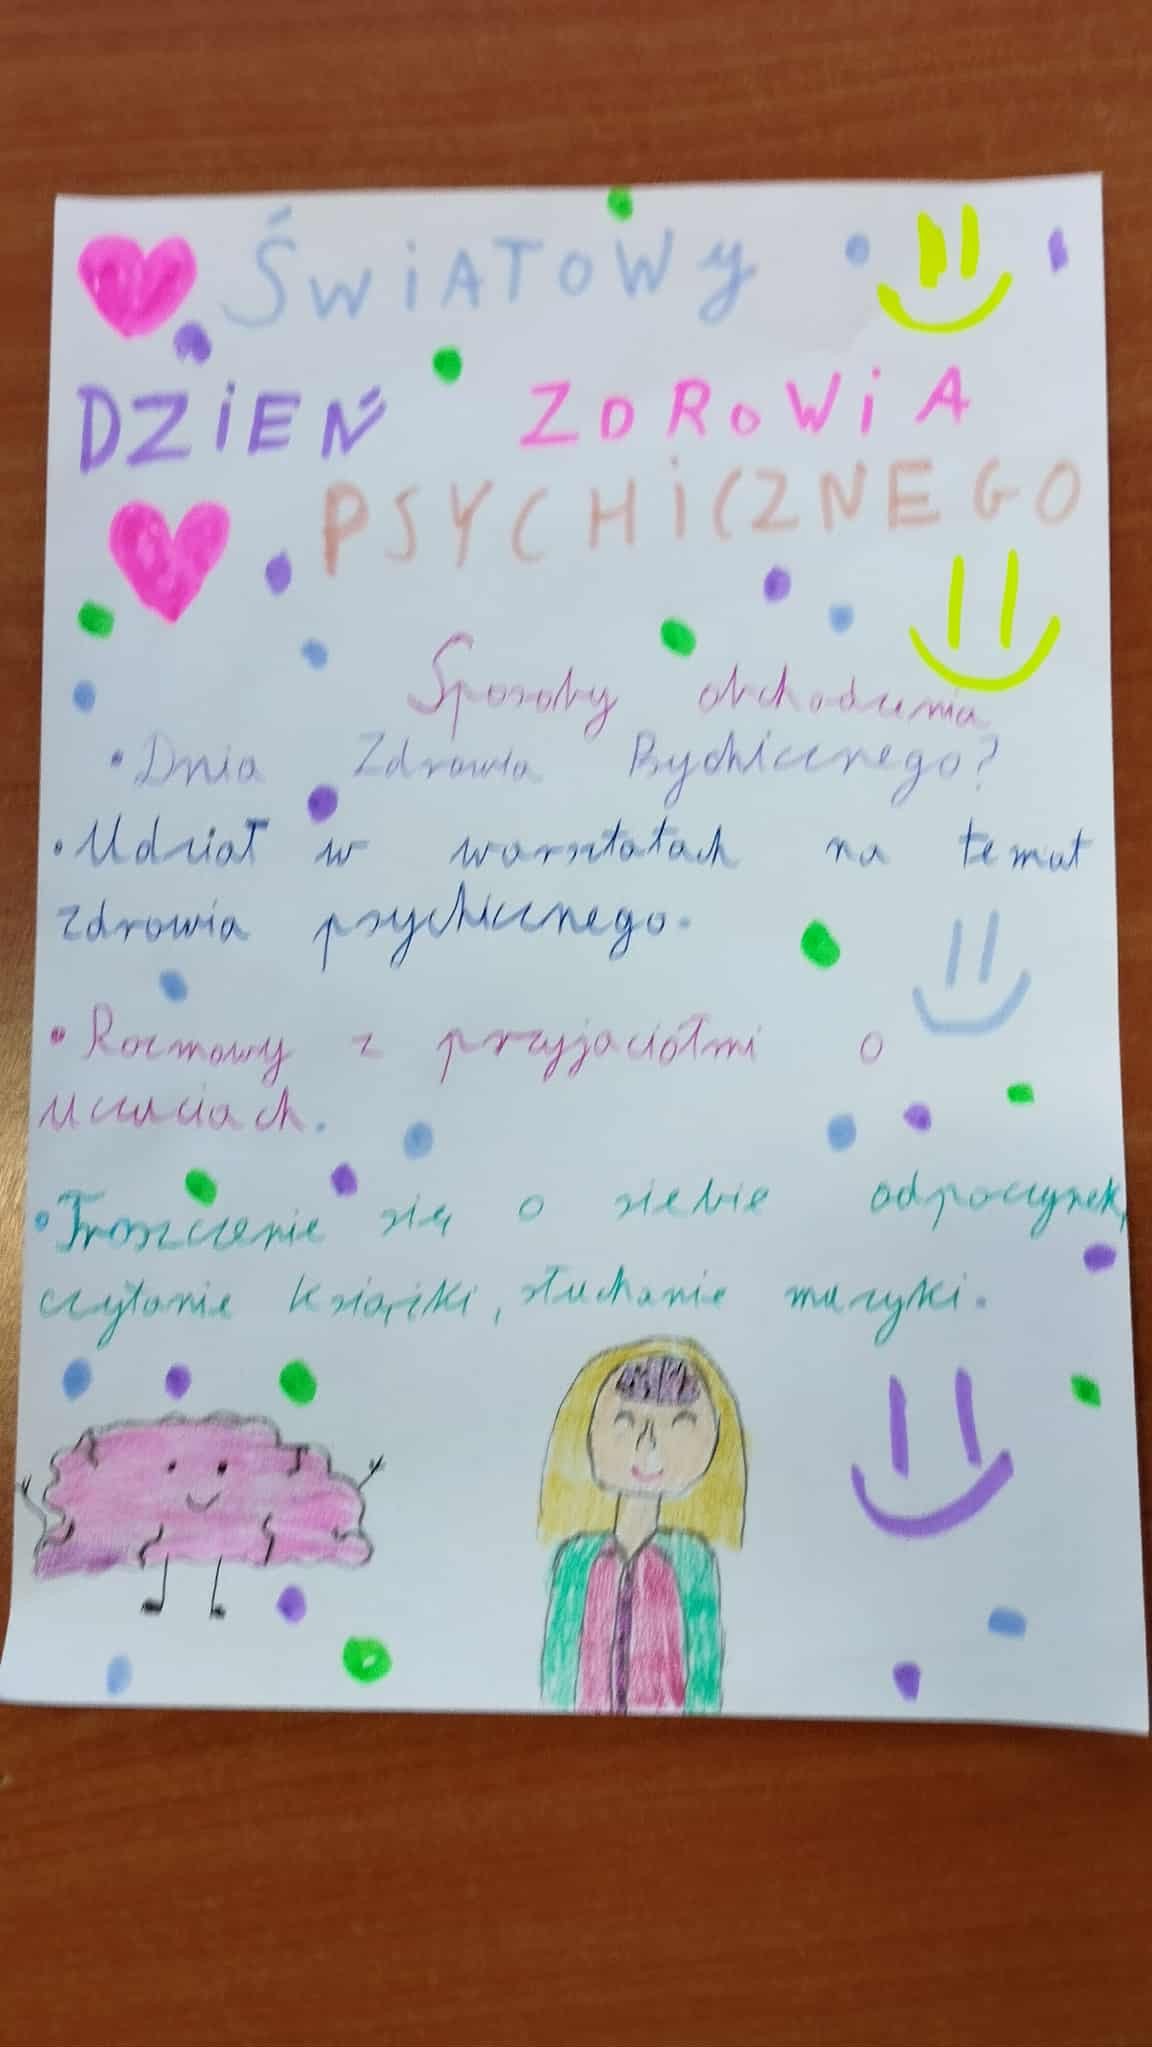 ŚWiATOWy
DZiEŃ ZDROWiA
PSYCHiCZNEGO
Sposoby obchodzenia
• Dnia Zdrowia Psychicznego?
• Udział w warsztatach na temat
zdrowia psychicznego.
• Rozmowy z przyjaciółmi o
uczuciach.
• Troszczenie się o siebie odpoczynek,
czytanie książki, słuchanie muzyki.